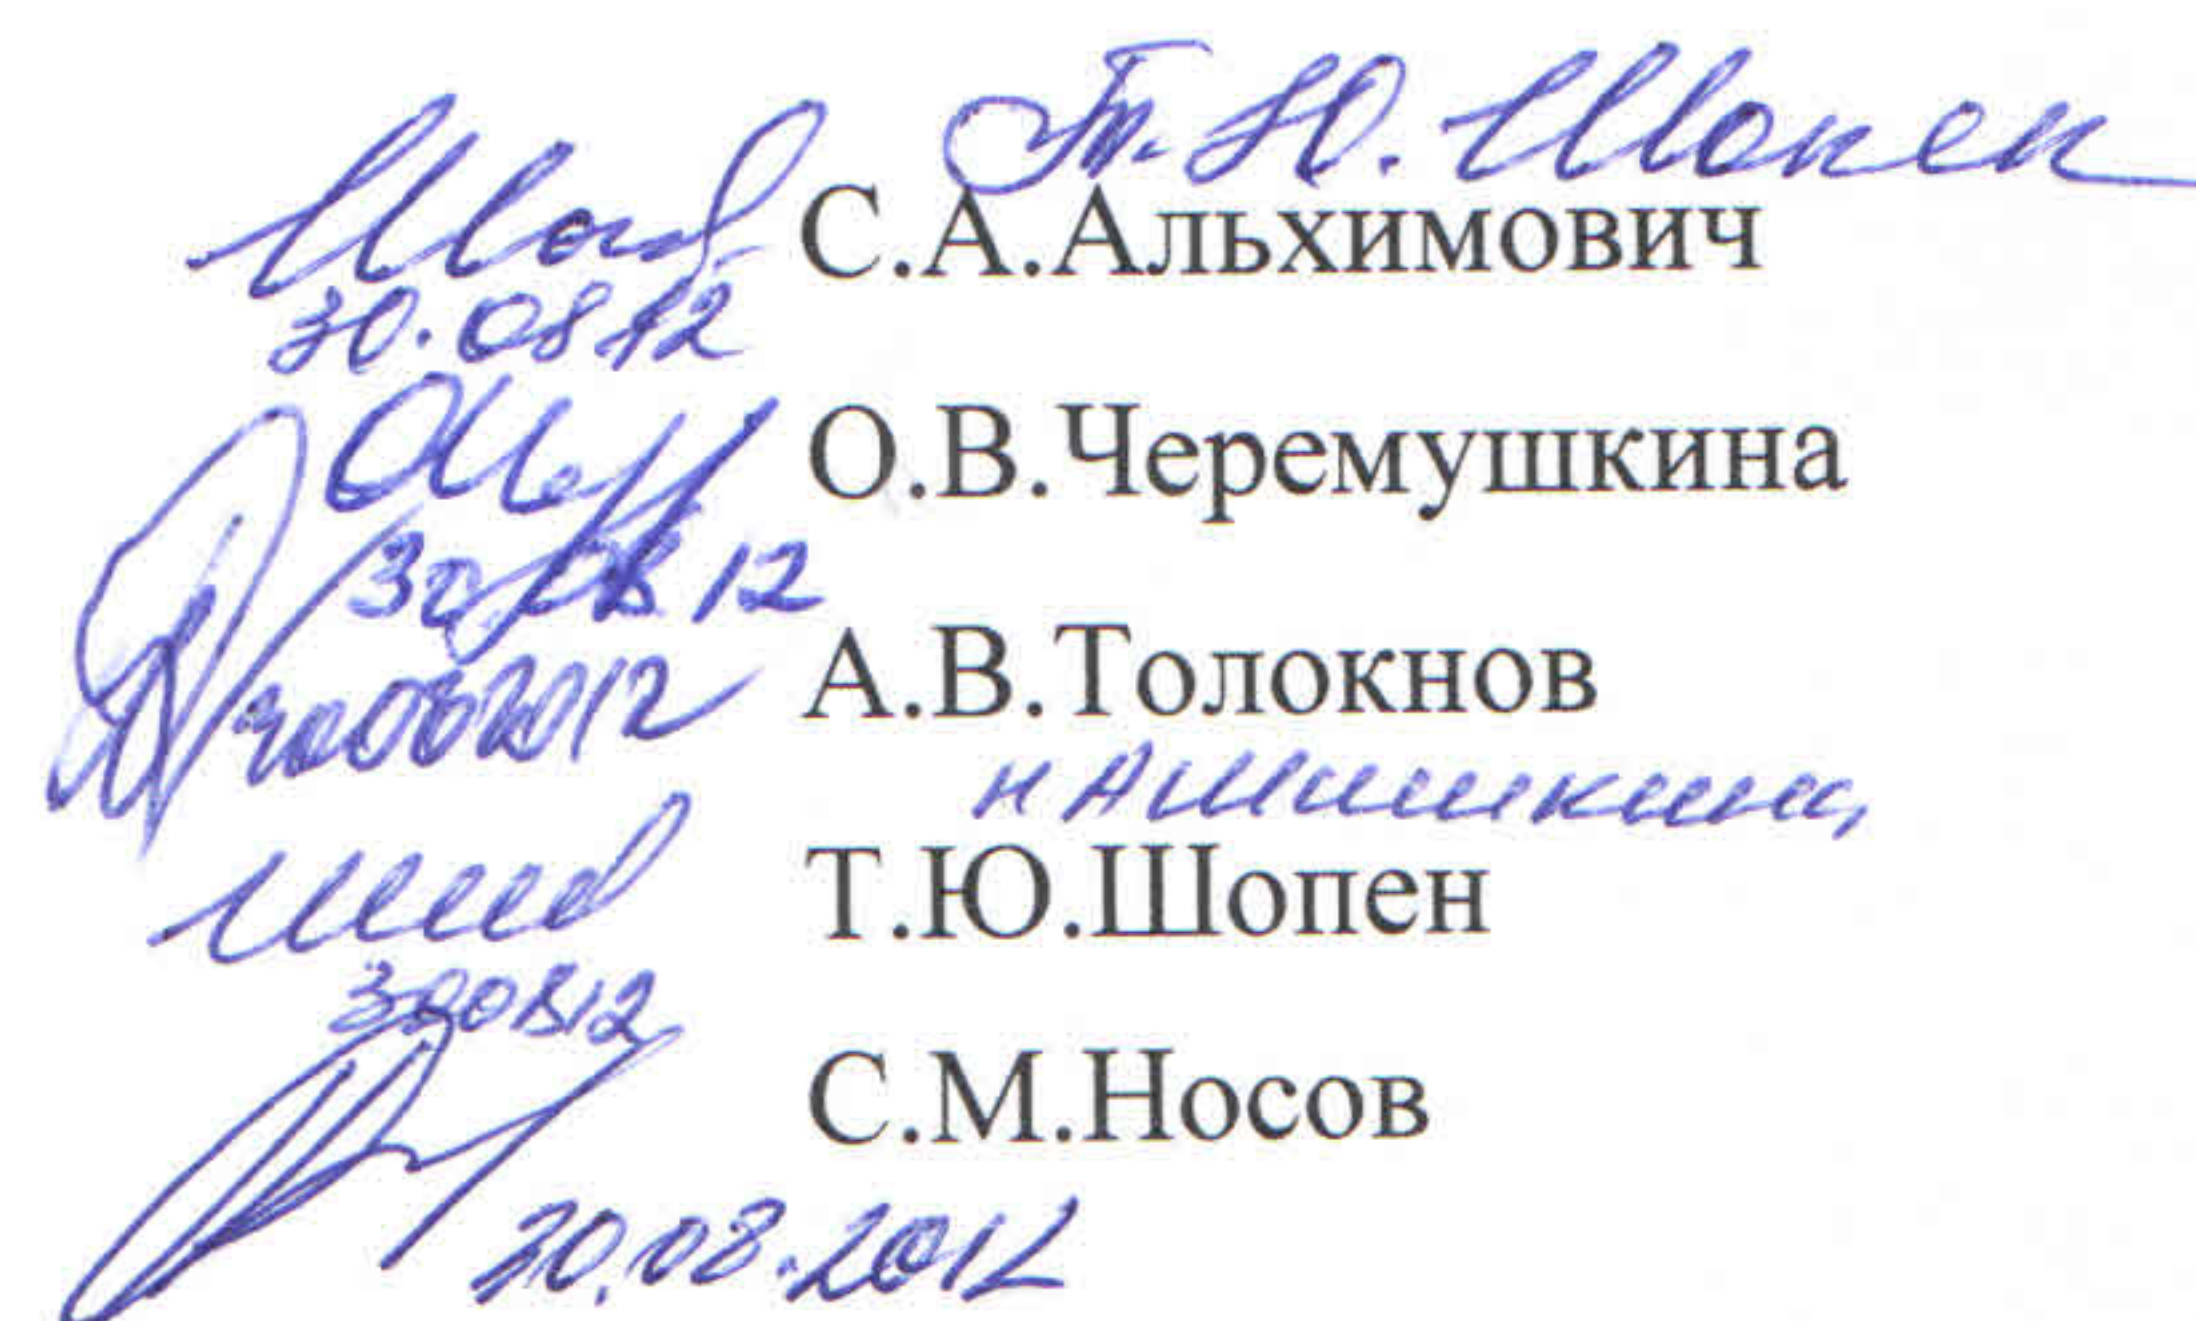 Т.Ю. Шопен
С.А.Альхимович
30.08.12
О.В.Черемушкина
30.08.12
А.В.Толокнов
30082012
Н А Шишкина
Т.Ю.Шопен
300812
С.М.Носов
30.08.2012